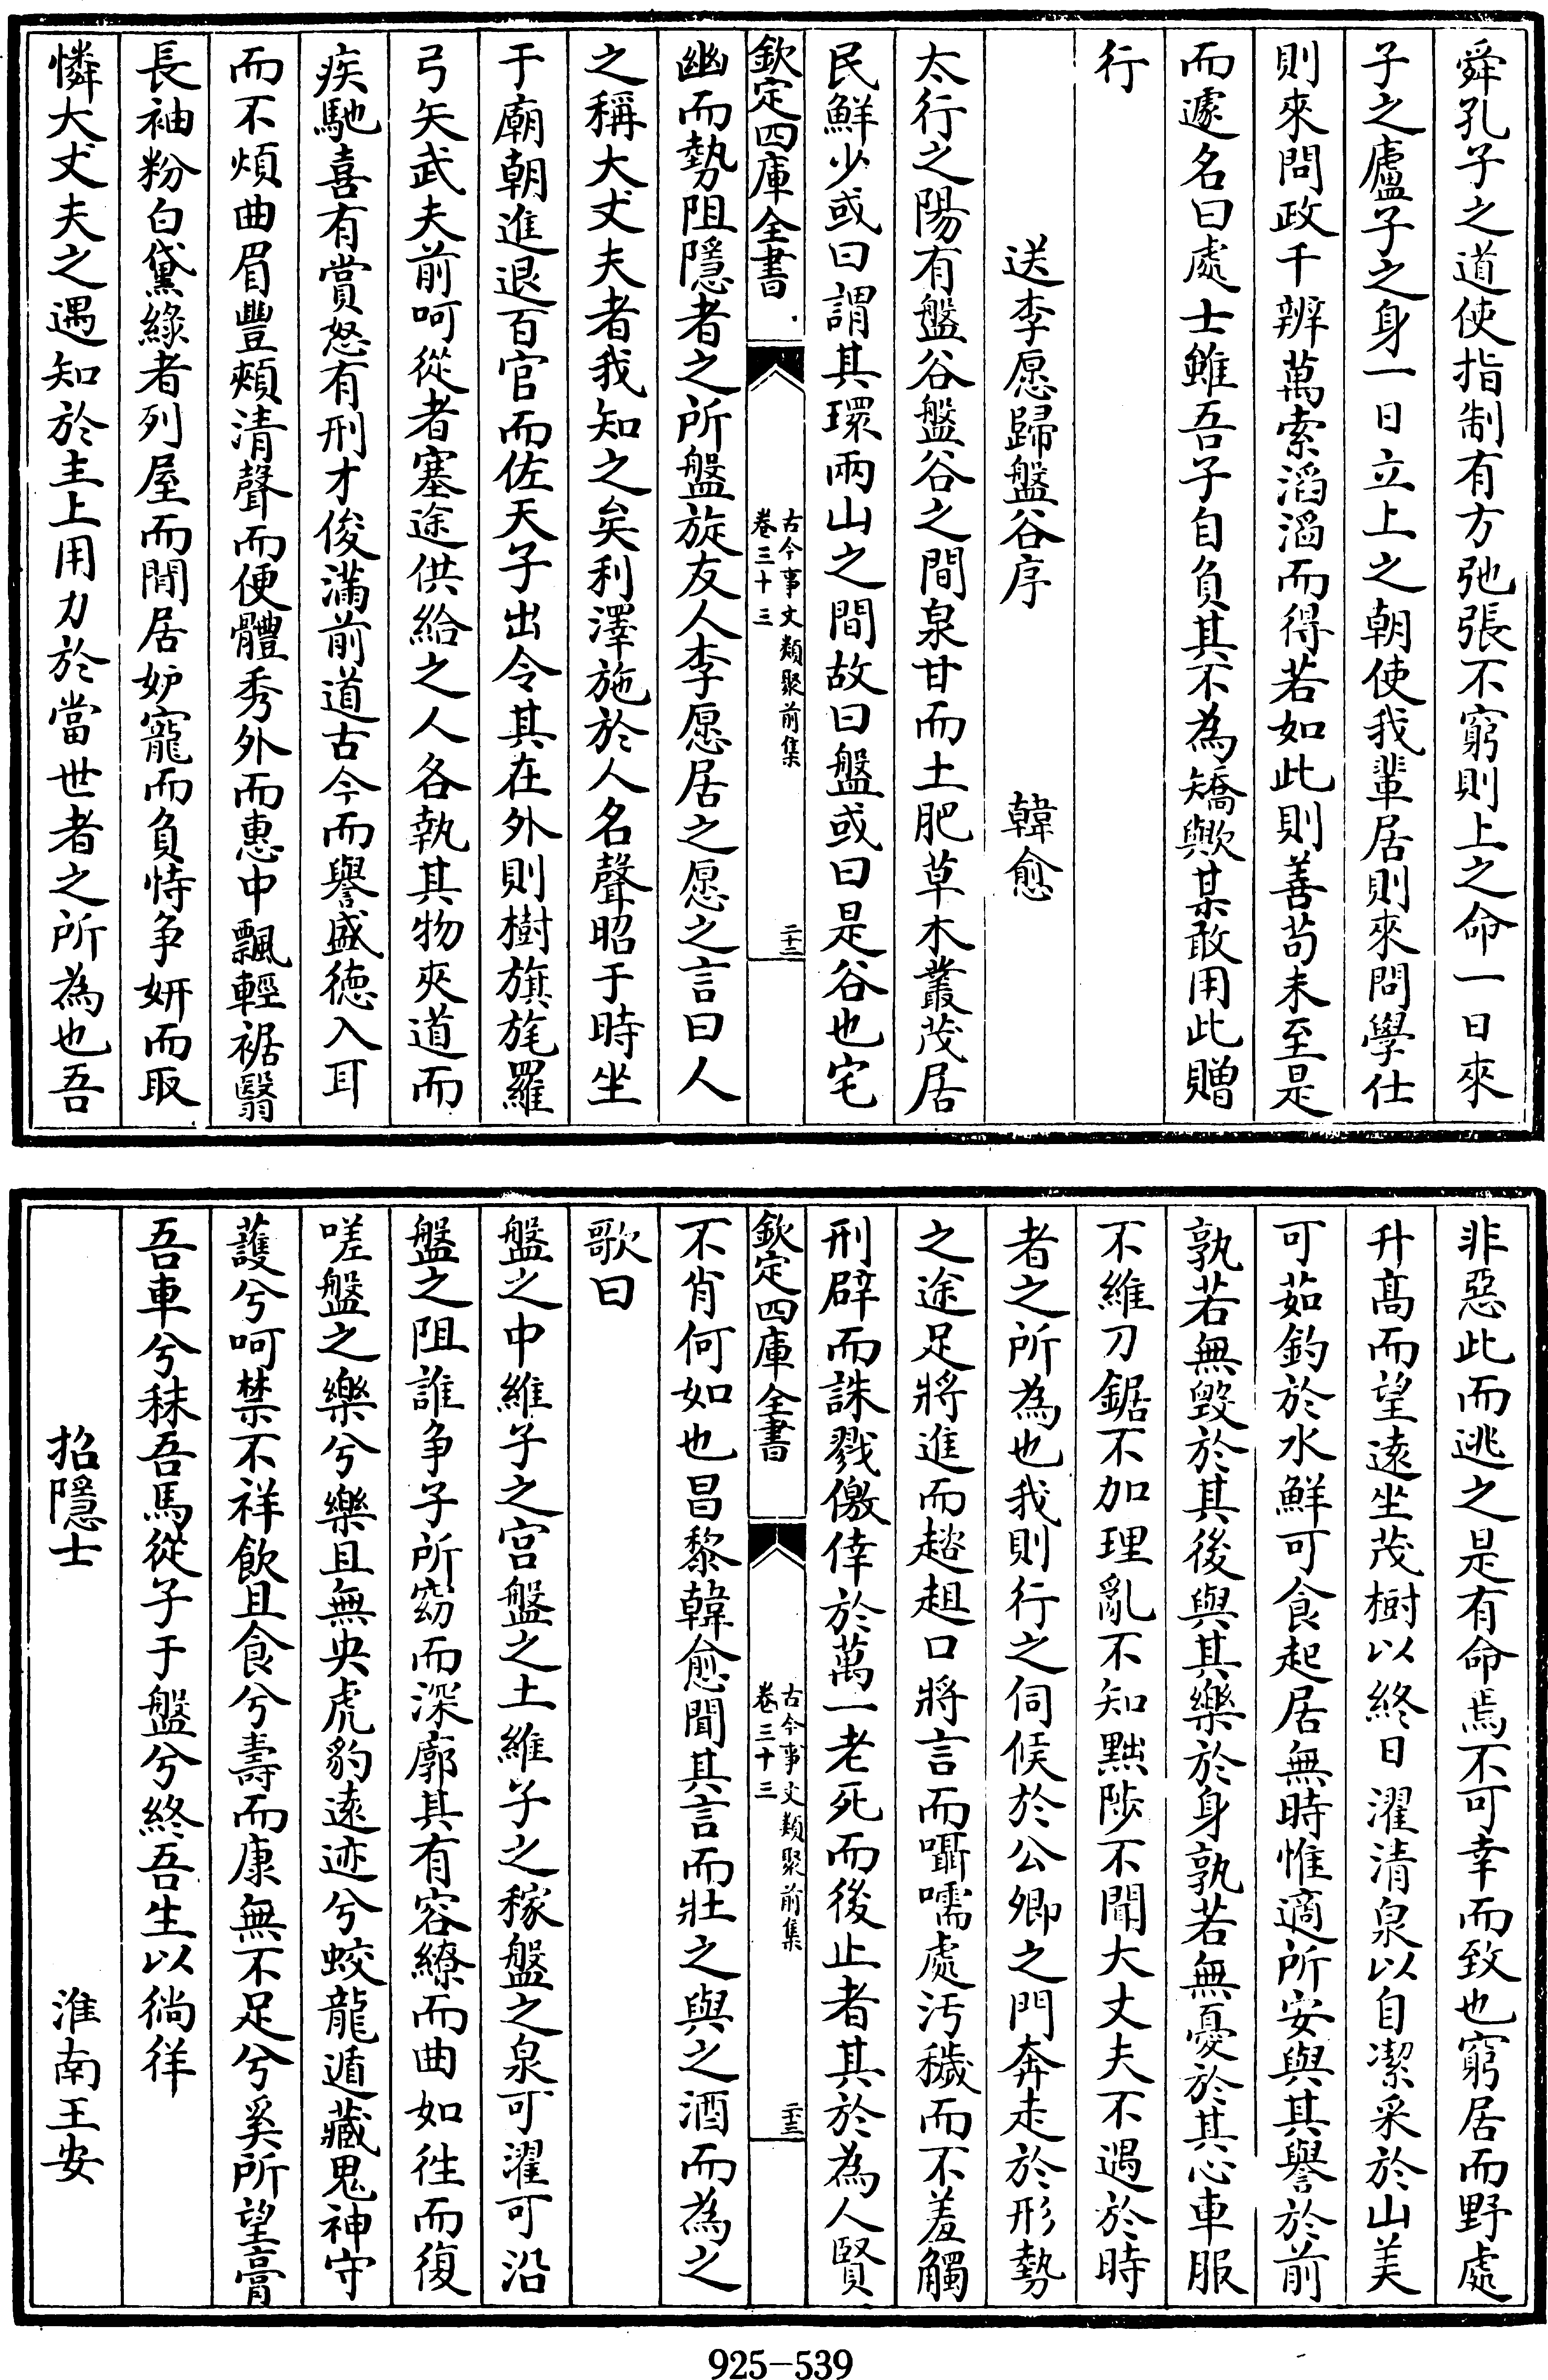 舜孔子之道使指制有方弛張不窮則上之命一日來
子之廬子之身一日立上之朝使我輩居則來問學仕
則來問政千辨萬索滔滔而得若如此則善茍未至是
而遽名曰處士雖吾子自負其不為矯歟某敢用此贈
行
送李愿歸盤谷序 韓愈
太行之陽有盤谷盤谷之間泉甘而土肥草木叢茂居
民鮮少或曰謂其環兩山之間故曰盤或曰是谷也宅
欽定四庫全書
古今事文類聚前集
卷三十三
二十二
幽而勢阻隱者之所盤旋友人李愿居之愿之言曰人
之稱大丈夫者我知之矣利澤施於人名聲昭于時坐
于廟朝進退百官而佐天子出令其在外則樹旗旄羅
弓矢武夫前呵從者塞途供給之人各執其物夾道而
疾馳喜有賞怒有刑才俊滿前道古今而譽盛徳入耳
而不煩曲眉豐頰清聲而便體秀外而惠中飄輕裾翳
長袖粉白黛緑者列屋而閒居妒寵而負恃争妍而取
憐大丈夫之遇知於主上用力於當世者之所為也吾
非惡此而逃之是有命焉不可幸而致也窮居而野處
升髙而望逺坐茂樹以終日濯清泉以自潔采於山美
可茹釣於水鮮可食起居無時惟適所安與其譽於前
孰若無毀於其後與其樂於身孰若無憂於其心車服
不維刀鋸不加理亂不知黜陟不聞大丈夫不遇於時
者之所為也我則行之伺候於公卿之門奔走於形勢
之途足將進而趦趄口將言而囁嚅處汚穢而不羞觸
刑辟而誅戮儌倖於萬一老死而後止者其於為人賢
欽定四庫全書
古今事文類聚前集
卷三十三
二十三
不肖何如也昌黎韓愈聞其言而壯之與之酒而為之
歌曰
盤之中維子之宫盤之土維子之稼盤之泉可濯可沿
盤之阻誰争子所窈而深廓其有容繚而曲如徃而復
嗟盤之樂兮樂且無央虎豹逺迹兮蛟龍遁藏鬼神守
護兮呵禁不祥飲且食兮壽而康無不足兮奚所望膏
吾車兮秣吾馬從子于盤兮終吾生以徜徉
招隱士 淮南王安
925-539